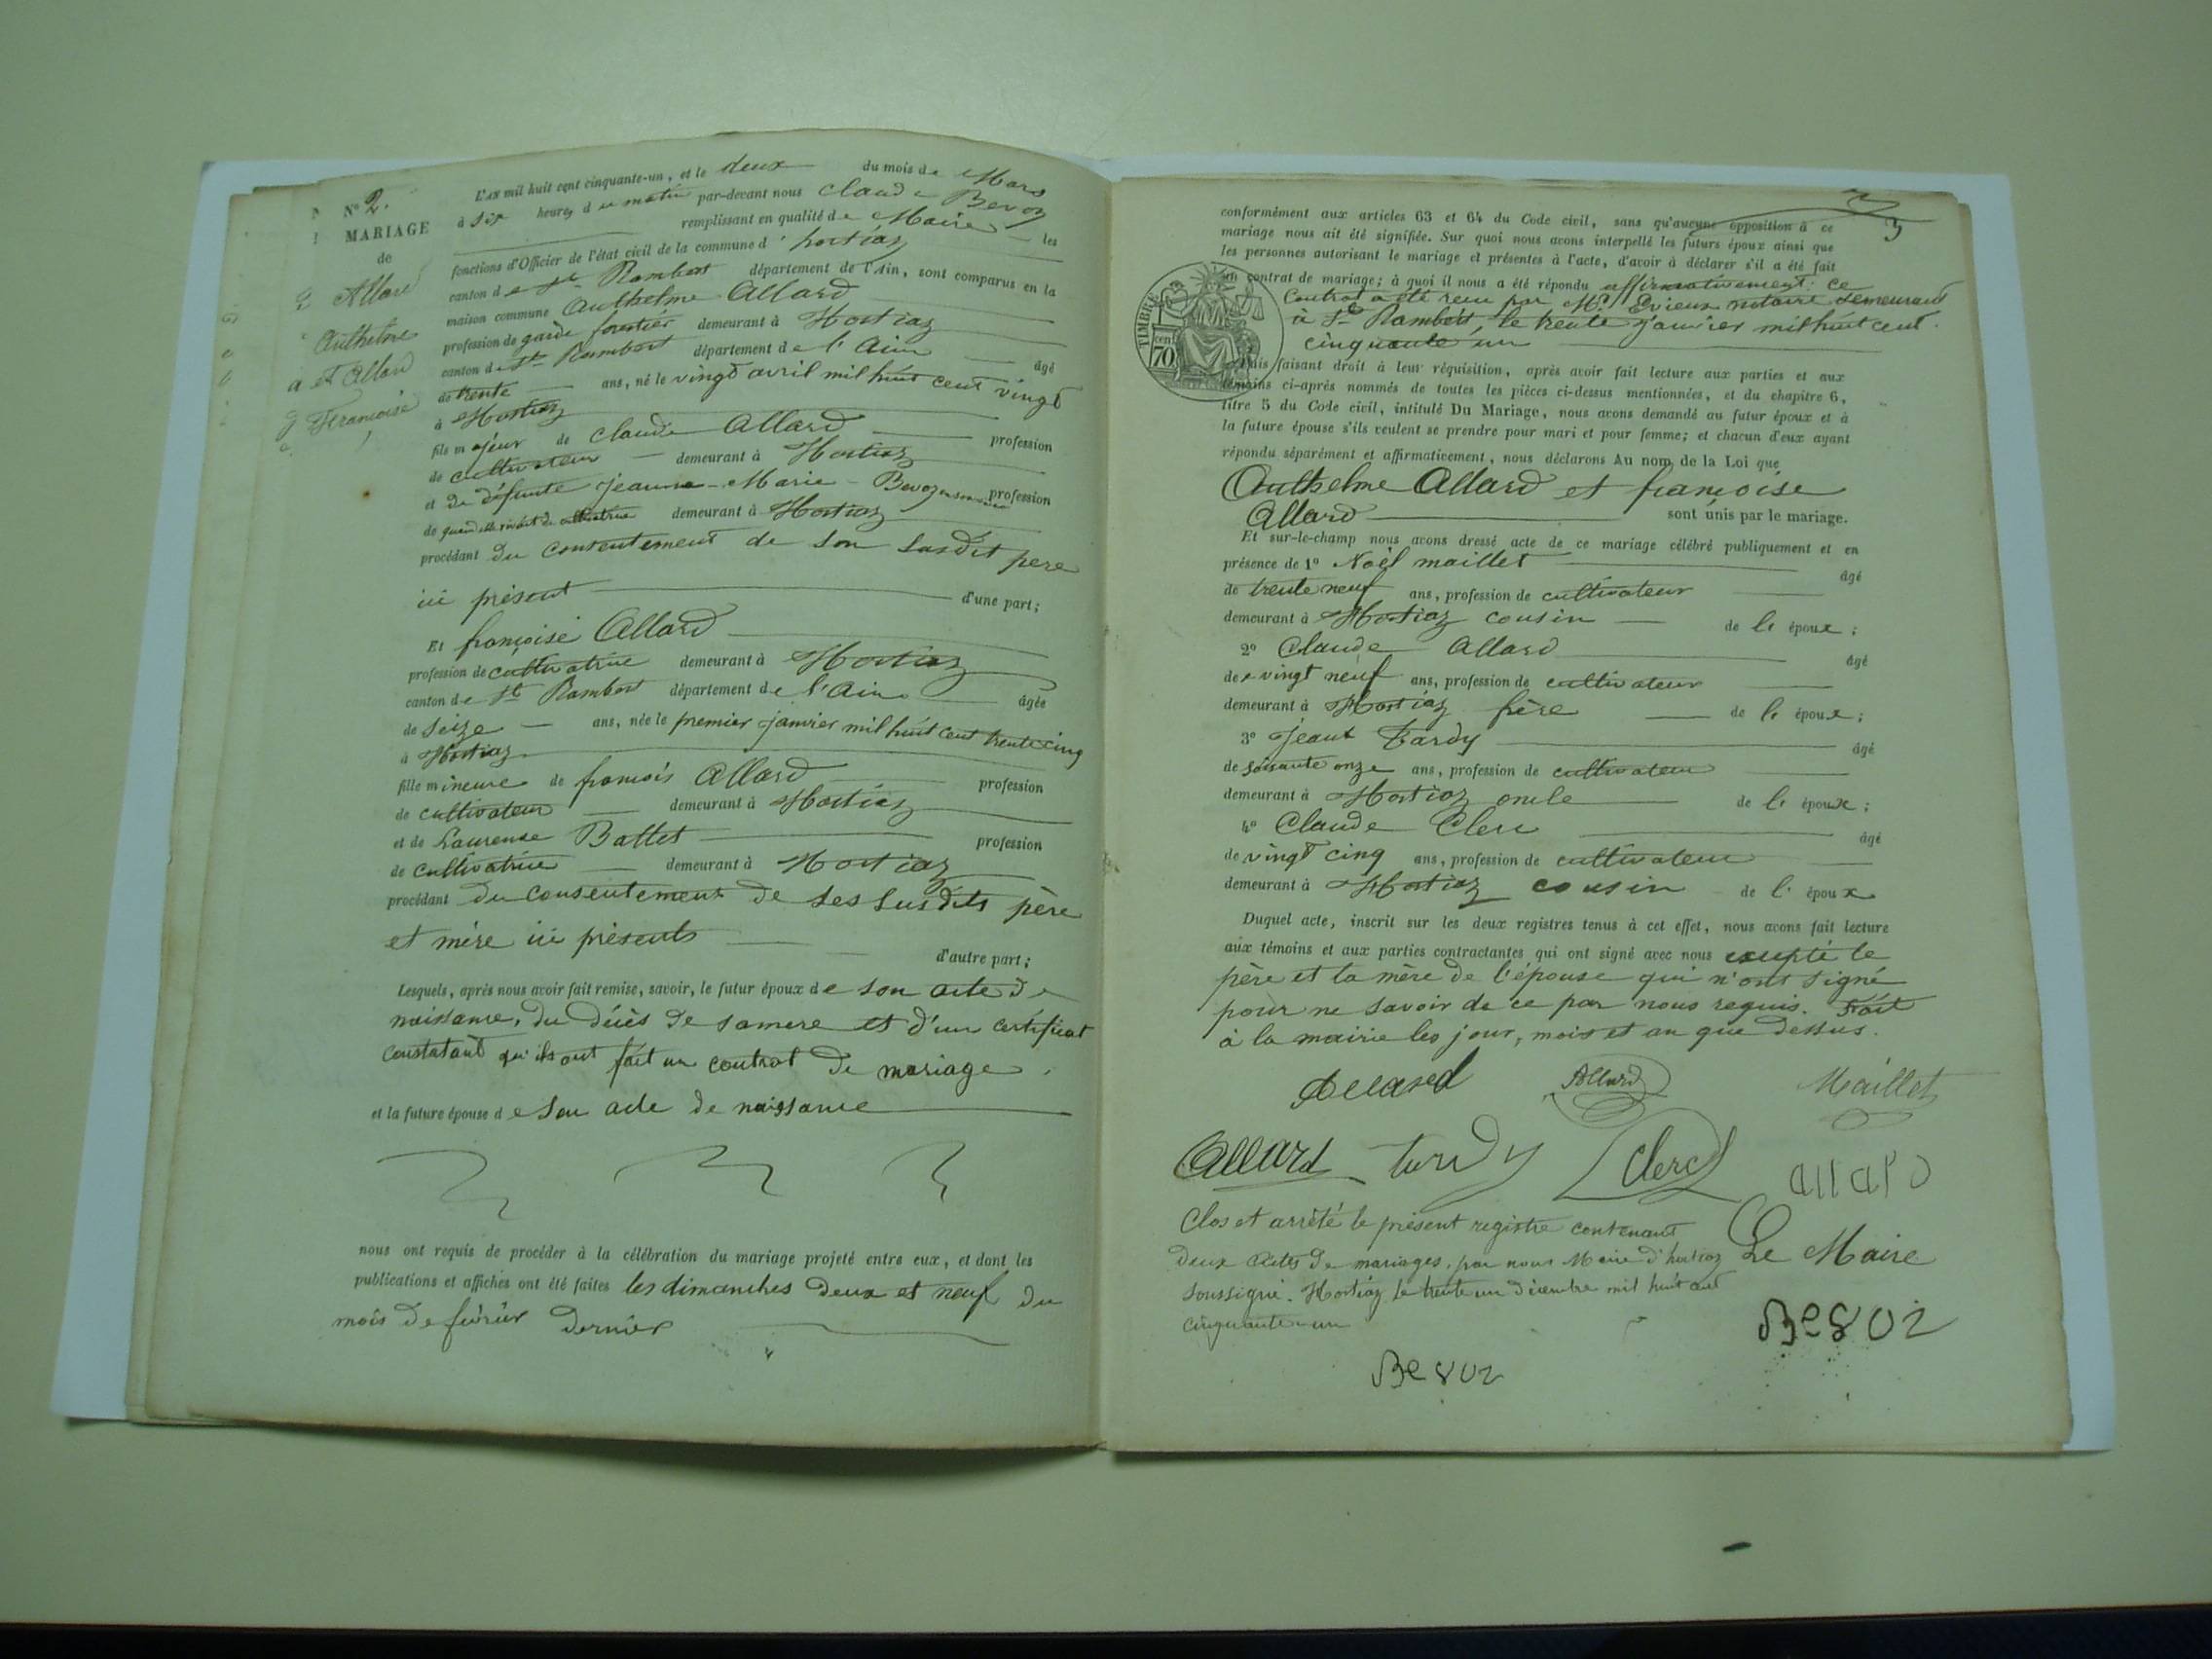 N° 2.
MARIAGE
de
Allard
Anthelme
et Allard
Françoise
L'AN mil huit cent cinquante-un, et le deux du mois de Mars
à six heures du matin par-devant nous Claude Bevoz
remplissant en qualité de Maire les
fonctions d'Officier de l'état civil de la commune d'hostiaz
canton de St Rambert département de l'Ain, sont comparus en la
maison commune Anthelme Allard
profession de garde forestier demeurant à Hostiaz
canton de St Rambert département de l'Ain âgé
de trente ans, né le vingt avril mil huit cent vingt
à Hostiaz
fils majeur de Claude Allard profession
de cultivateur demeurant à Hostiaz
et de défunte Jeanne-Marie-Bevoz profession
de quand elle vivait de cultivatrice demeurant à Hostiaz
procédant du consentement de son susdit pere
ici présent d'une part;
Et françoise Allard
profession de cultivatrice demeurant à Hostiaz
canton de St Rambert département de l'Ain âgée
de seize ans, née le premier janvier mil huit cent trente cinq
à Hostiaz
fille mineure de francois Allard profession
de cultivateur demeurant à Hostiaz
et de Laurense Battet profession
de cultivatrice demeurant à Hostiaz
procédant du consentement de ses susdits père
et mère ici présents d'autre part;
Lesquels, après nous avoir fait remise, savoir, le futur époux de son acte de
naissance, du décès de sa mere et d'un certificat
constatant qu'ils ont fait un contrat de mariage.
et la future épouse de son acte de naissance
nous ont requis de procéder à la célébration du mariage projeté entre eux, et dont les
publications et affiches ont été faites les dimanches deux et neuf du
mois de février dernier
3
conformément aux articles 63 et 64 du Code civil, sans qu'aucune opposition à ce
mariage nous ait été signifiée. Sur quoi nous avons interpellé les futurs époux ainsi que
les personnes autorisant le mariage et présentes à l'acte, d'avoir à déclarer s'il a été fait
un contrat de mariage; à quoi il nous a été répondu affirmativement: ce
contrat a été recu par Me. notaire demeurant
à St Rambert, le trente janvier mil huit cent
cinquante un
TIMBRE
cen 70
Puis faisant droit à leur réquisition, après avoir fait lecture aux parties et aux
témoins ci-après nommés de toutes les pièces ci-dessus mentionnées, et du chapitre 6,
titre 5 du Code civil, intitulé Du Mariage, nous avons demandé au futur époux et à
la future épouse s'ils veulent se prendre pour mari et pour femme; et chacun d'eux ayant
répondu séparément et affirmativement, nous déclarons Au nom de la Loi que
Anthelme Allard et françoise
Allard sont unis par le mariage.
Et sur-le-champ nous avons dressé acte de ce mariage célébré publiquement et en
présence de 1° Noël maillet âgé
de trente neuf ans, profession de cultivateur
demeurant à Hostiaz cousin de l'époux;
2° Claude Allard âgé
de vingt neuf ans, profession de cultivateur
demeurant à Hostiaz frère de l'époux;
3° Jeant Tardy âgé
de soisante onze ans, profession de cultivateur
demeurant à Hostiaz oncle de l'époux;
4° Claude Clerc âgé
de vingt cinq ans, profession de cultivateur
demeurant à Hostiaz cousin de l'époux
Duquel acte, inscrit sur les deux registres tenus à cet effet, nous avons fait lecture
aux témoins et aux parties contractantes qui ont signé avec nous excepté le
père et la mère de l'épouse qui n'ont signé
pour ne savoir de ce par nous requis. Fait
à la mairie les jour, mois et an que dessus.
Allard Allard Maillet
Allard tardy Clerc allard
Clos et arrêté le présent registre contenant
deux actes de mariages, par nous Maire d'hostiaz Le Maire
soussigné. Hostiaz le trente un décembre mil huit cent
cinquante-un Bevoz
Bevoz